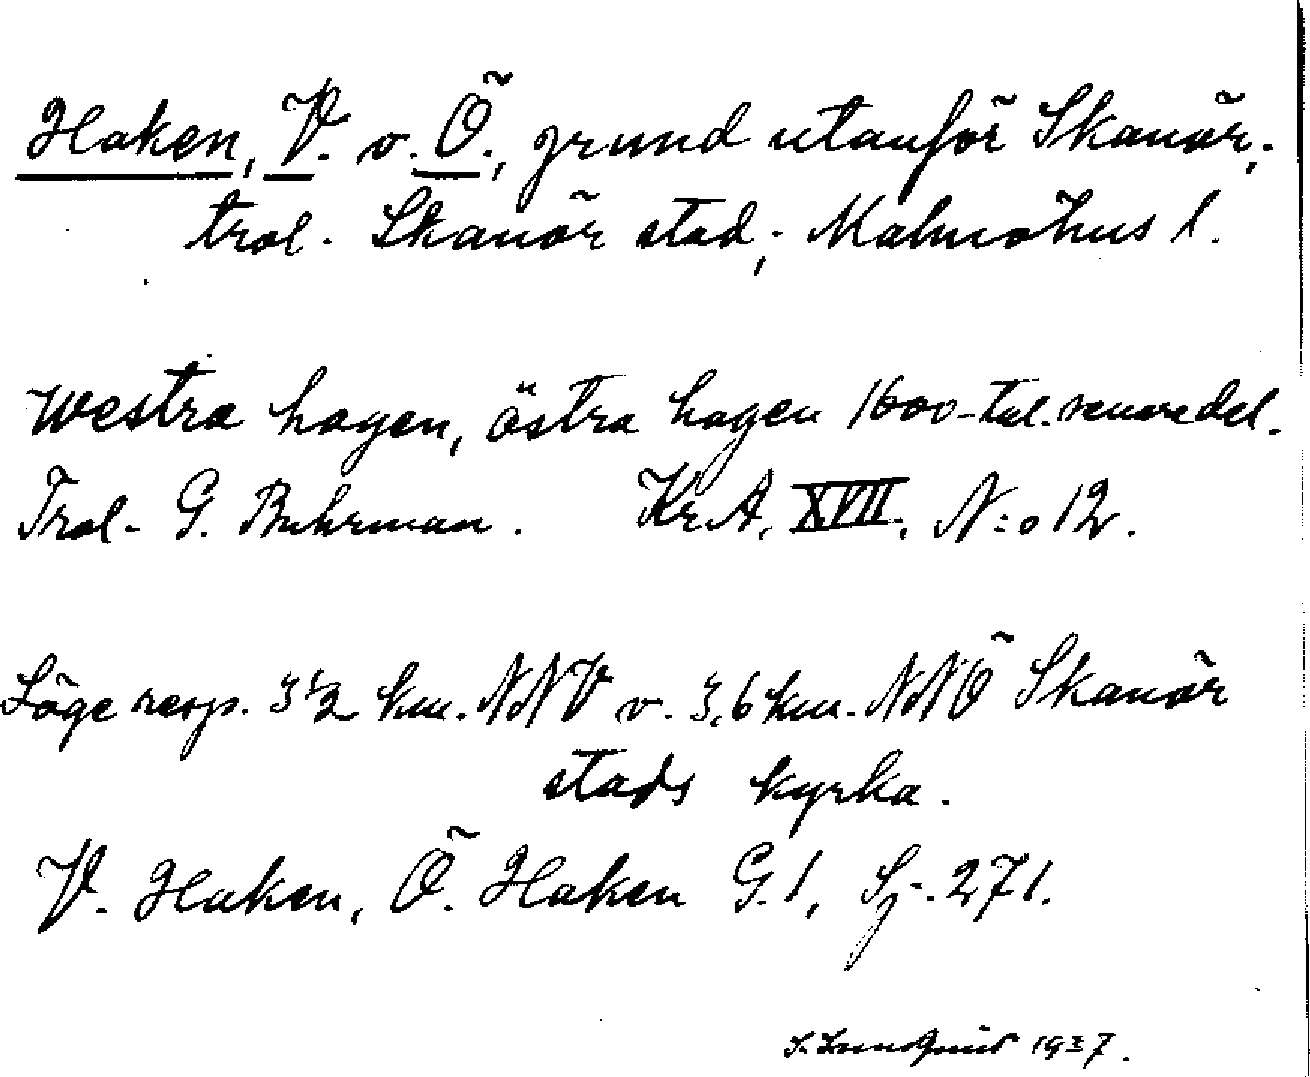 Haken, V. o. Ö., grund utanför Skanör,
trol. Skanör stad, Malmöhus l.
Westra hagen, östra hagen 1600-tal. senare del.
Trol. G. Buhrman. Kr.A. XVII. N:o 12.
Läge resp. 3 1/2 km. NNV o. 3,6 km. NNÖ Skanör
stads kyrka.
V. Haken, Ö. Haken G. 1, Sj. 271.
S. Lundquist 1937.